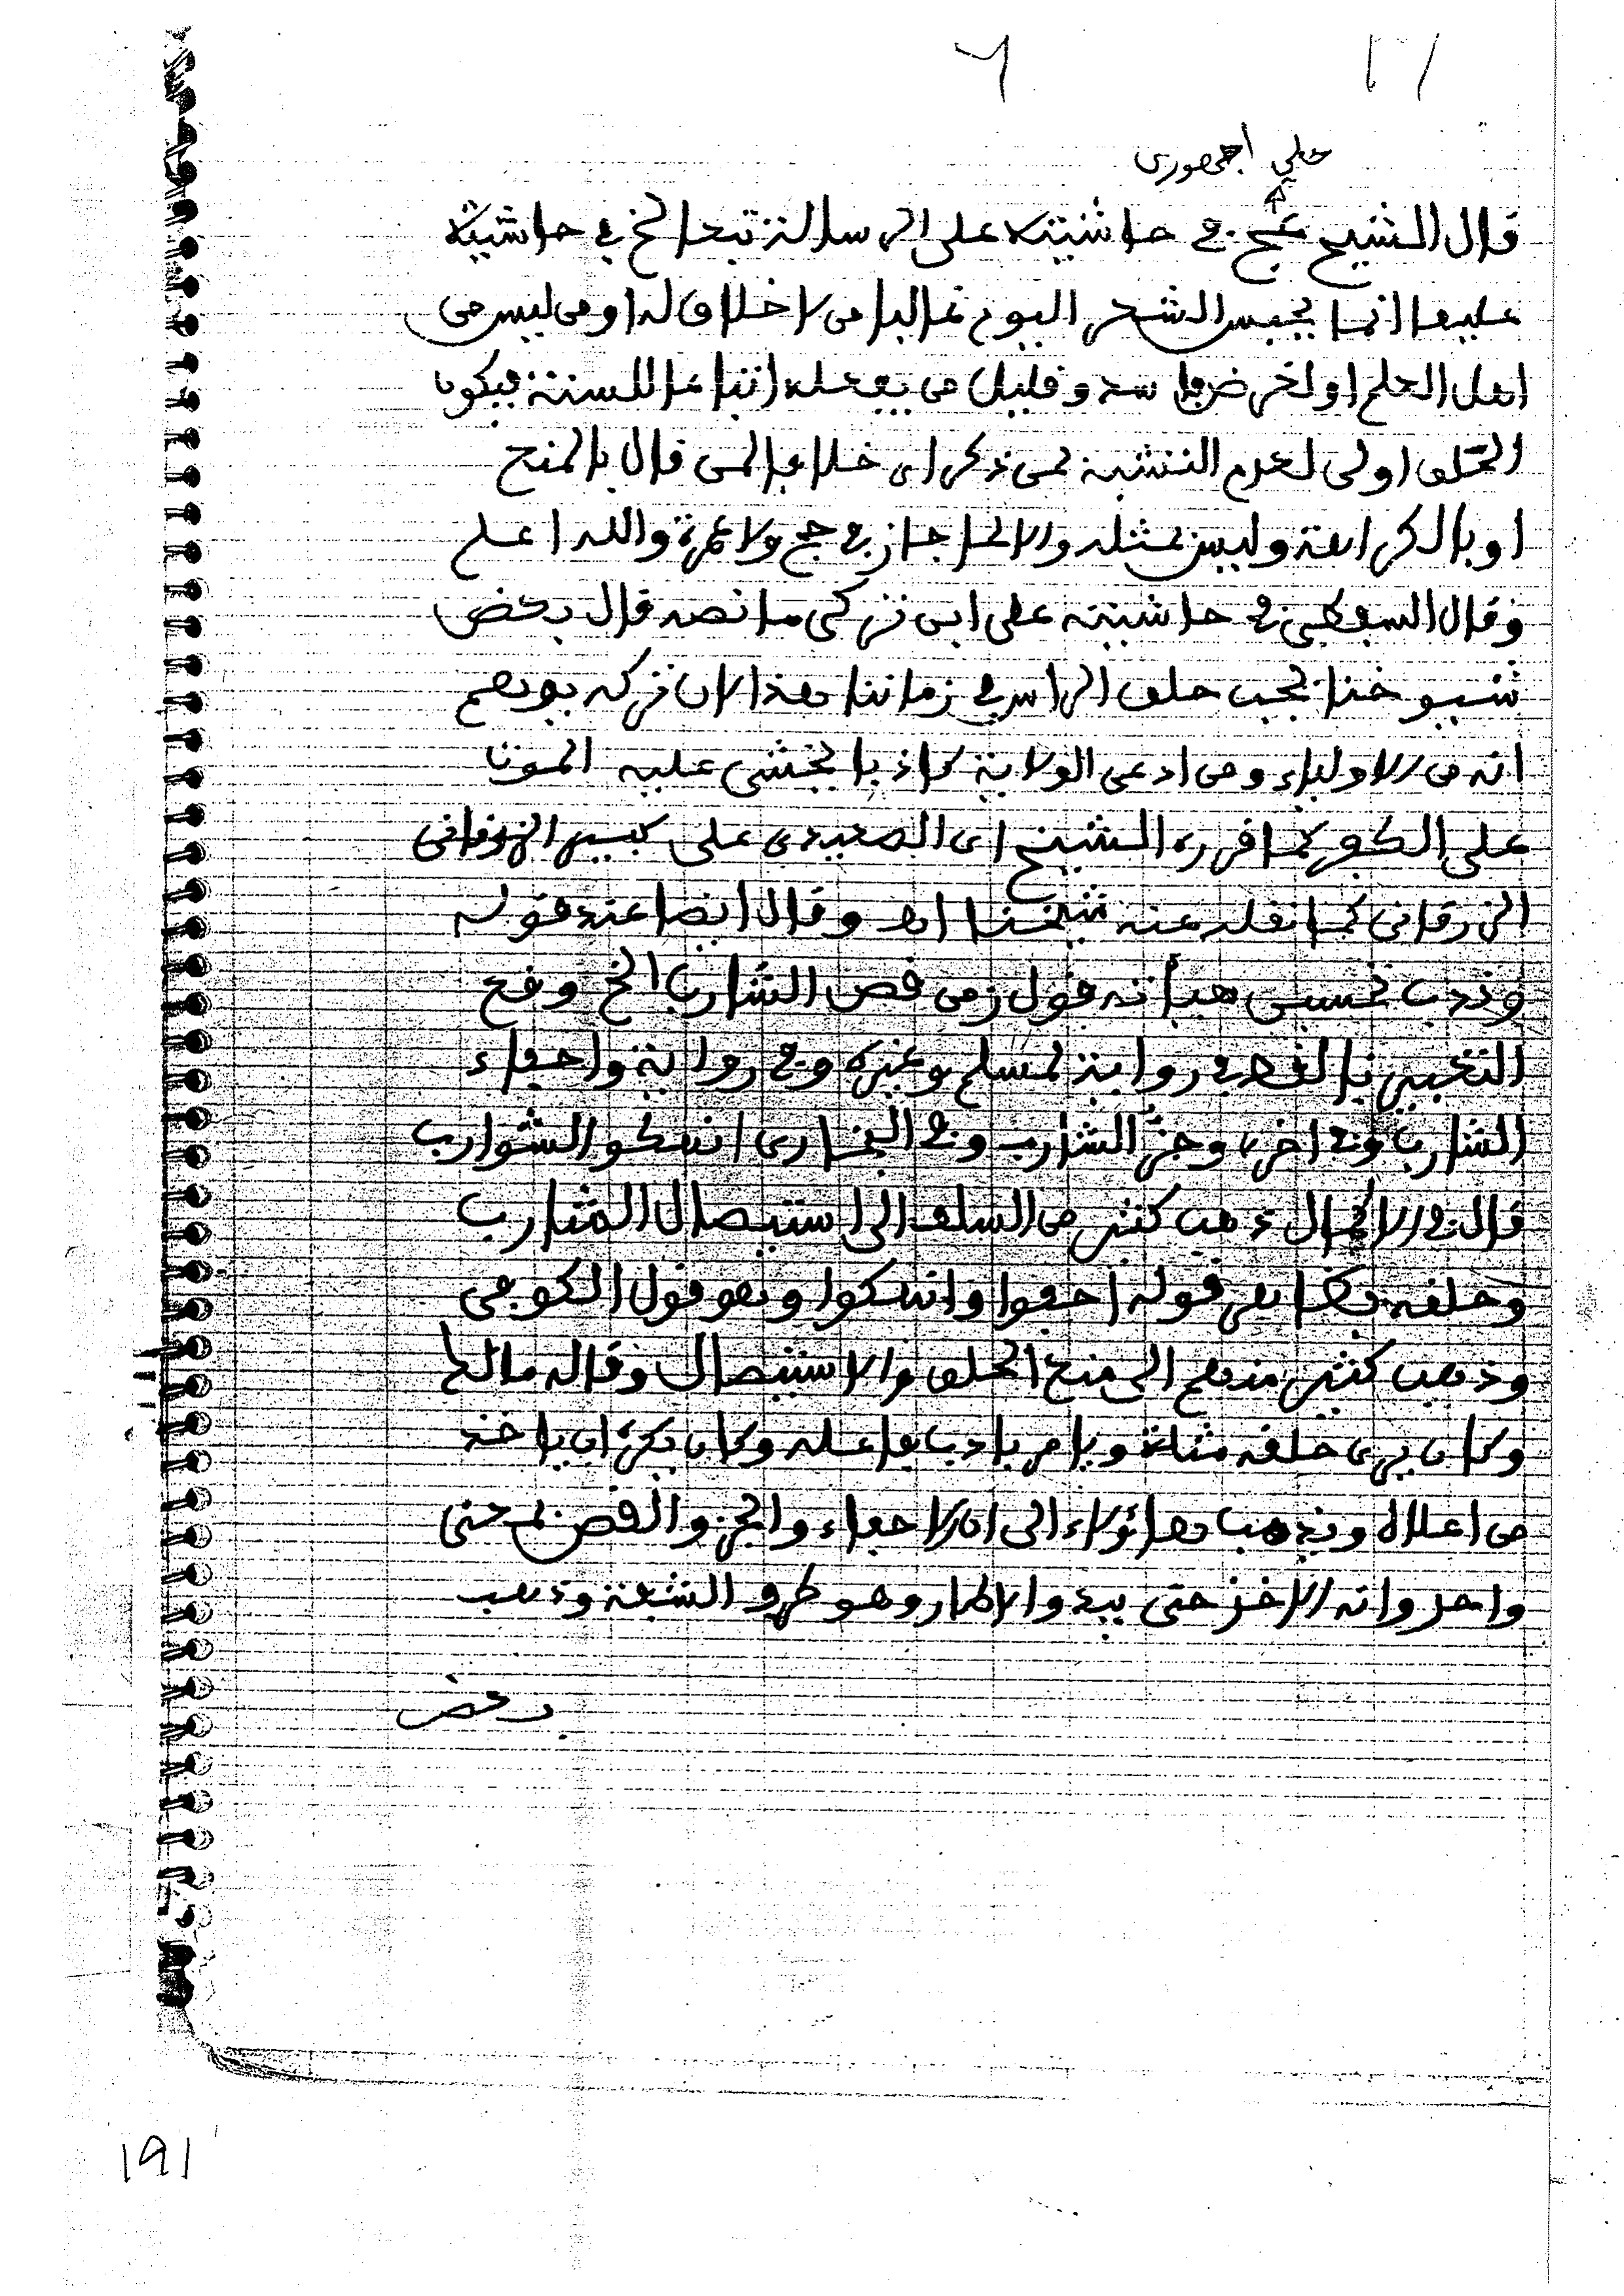 ٦
علي اجهوري
قال الشيخ عج في حاشيته على الرسالة تبعا لخ في حاشيته
عليها انما يحبس الشعر اليوم غالبا من لا خلاق له او من ليس من
اهل العلم او لغرض فاسد وقليل من يفعله اتباعا للسنة فيكون
الحلق اولى لعدم التشبه بمن ذكر اي خلافا لمن قال بالمنع
او بالكراهة وليس بمثله والا لما جاز في حج ولا عمرة والله اعلم
وقال السفطي في حاشيته على ابن تركي ما نصه قال بعض
شيوخنا يجب حلق الراس في زماننا هذا لان تركه يوهم
انه من الاولياء ومن ادعى الولاية كاذبا يخشى عليه الموت
على الكفر كما قرره الشيخ اي الصعيدي على كبير الزرقاني
الزرقاني كما نقله عنه شيخنا اهـ وقال ايضا عند قوله
وتحسين هيأته قول زمن قص الشارب الخ وقع
التعبير بالقص في رواية لمسلم وغيره وفي رواية واحفاء
الشارب وفي اخرى وجز الشارب وفي البخاري انهكوا الشوارب
قال في الاكمال ذهب كثير من السلف الى استيصال الشارب
وحلقه بظاهر قوله احفوا وانهكوا وهو قول الكوفي
وذهب كثير منهم الى منع الحلق والاستيصال وقاله مالك
وكان يرى حلقه مثلة ويامر بادب فاعله وكان يكره ان ياخذ
من اعلاه ويذهب هائولاء الى ان الاحفاء والجز والقص بمعنى
واحد وانه الاخذ حتى يبدو الاطار وهو طرف الشفة وذهب
بعض
191